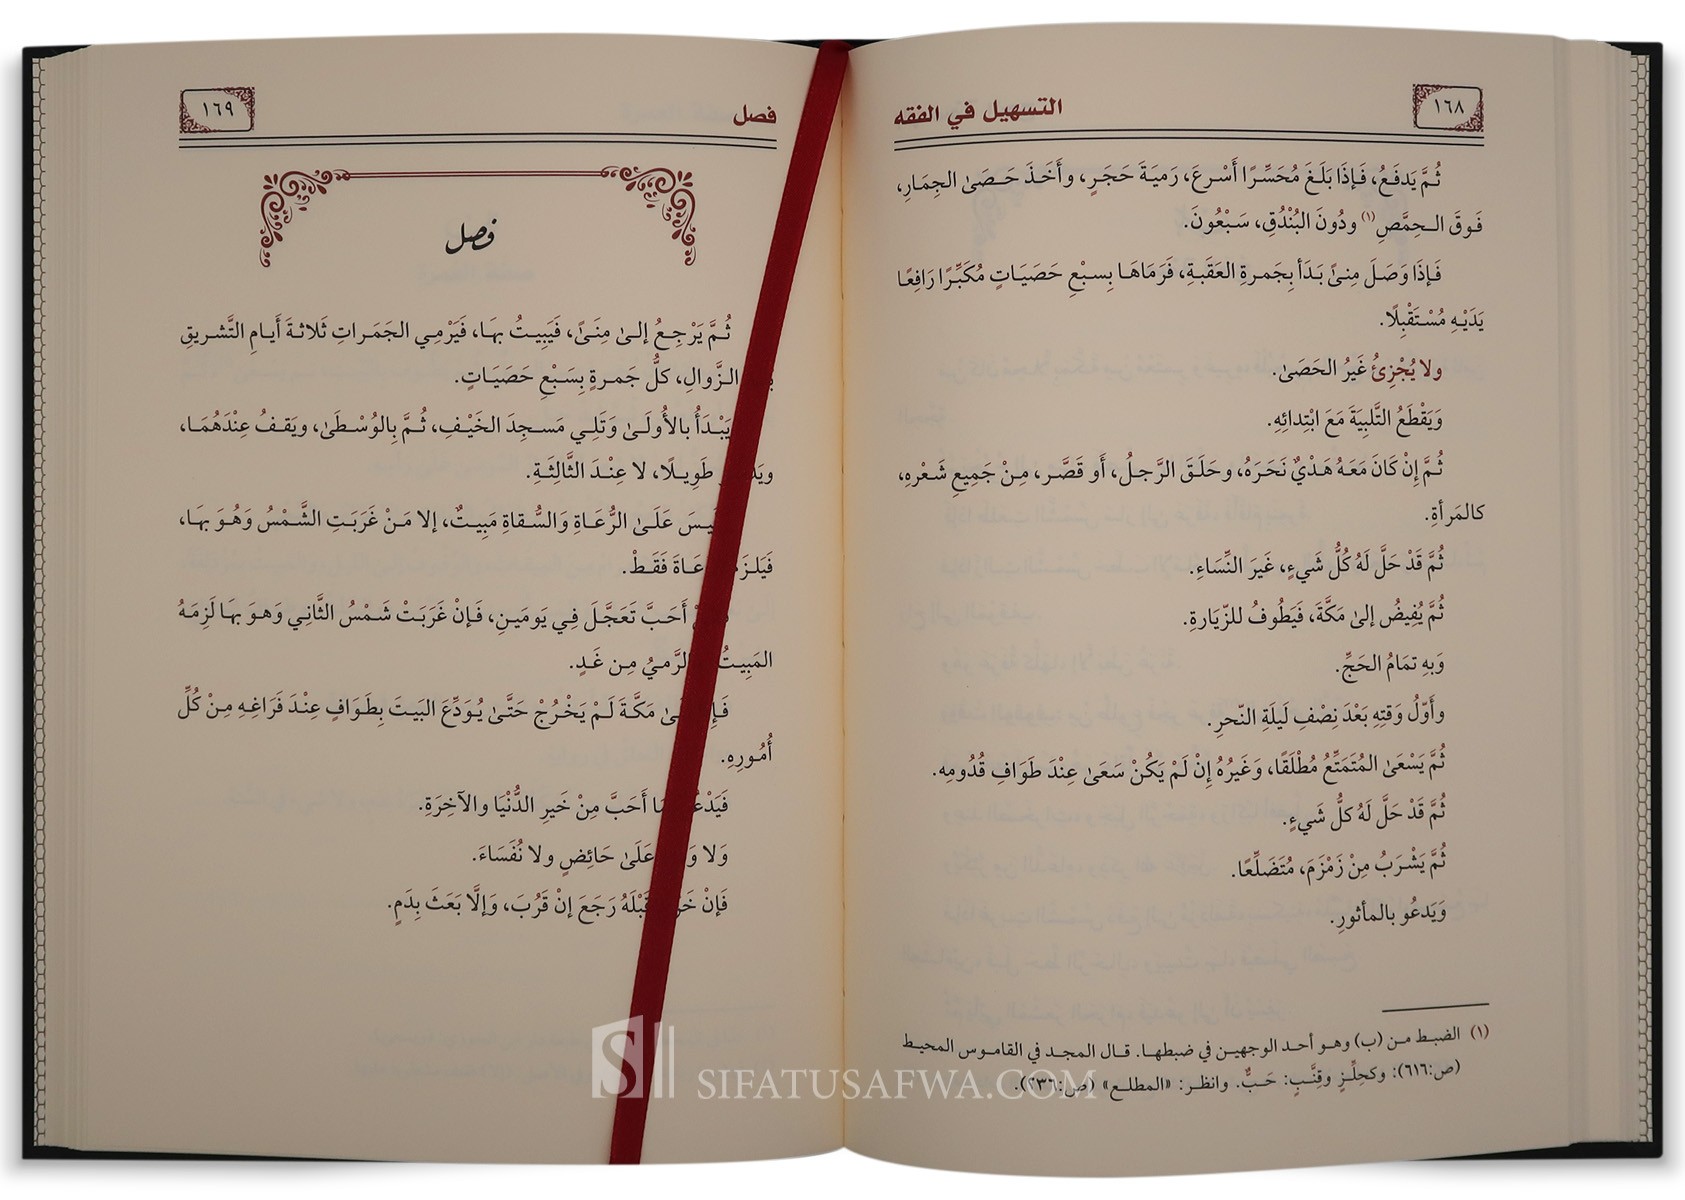 ١٦٨
التسهيل في الفقه
ثُمَّ يَدفَعُ، فَإذَا بَلَغَ مُحَسِّرًا أَسْرعَ، رَميَةَ حَجَرٍ، وأَخَذَ حَصَىٰ الجِمَارِ،
فَوقَ الـحِمَّصِ(١) ودُونَ البُنْدُقِ، سَبْعُونَ.
فَإذَا وَصَلَ مِنىً بَدَأ بِجَمرةِ العَقَبَةِ، فَرَمَاهَا بِسبْعِ حَصَيَاتٍ مُكَبِّرًا رَافِعًا
يَدَيْهِ مُسْتَقْبِلًا.
ولا يُجْزِئُ غَيرُ الحَصَىٰ.
وَيَقْطَعُ التَّلبِيَةَ مَعَ ابْتِدائِهِ.
ثُمَّ إنْ كَانَ مَعَهُ هَدْيٌ نَحَرَهُ، وحَلَقَ الرَّجلُ، أَو قَصَّر، مِنْ جَمِيعِ شَعْرهِ،
كالمَرأةِ.
ثُمَّ قَدْ حَلَّ لَهُ كُلُّ شَيءٍ، غَيرَ النِّسَاءِ.
ثُمَّ يُفِيضُ إلىٰ مَكَّةَ، فَيَطُوفُ للزّيَارةِ.
وَبهِ تمَامُ الحَجِّ.
وأَوّلُ وَقتِهِ بَعْدَ نِصْفِ لَيلَةِ النّحرِ.
ثُمَّ يَسْعَىٰ المُتَمَتِّعُ مُطْلَقًا، وَغَيرُهُ إنْ لَمْ يَكُنْ سَعَىٰ عِنْدَ طَوَافِ قُدُومِه.
ثُمَّ قَدْ حَلَّ لَهُ كلُّ شَيءٍ.
ثُمَّ يَشْرَبُ مِنْ زَمْزَمَ، مُتَضَلِّعًا.
وَيَدعُو بالمأثورِ.
(١) الضبط من (ب) وهو أحد الوجهين في ضبطها. قال المجد في القاموس المحيط
(ص:٦١٦): وكحِلِّزٍ وقِنَّبٍ: حَبٌّ. وانظر: «المطلع» (ص:٢٣٦).
فصل
١٦٩
فصل
ثُمَّ يَرْجِعُ إلىٰ مِنَىً، فَيَبِيتُ بهَا، فَيَرْمِي الجَمَراتِ ثَلاثةَ أَيامِ التَّشريقِ
الزَّوالِ، كلُّ جَمرةٍ بِسَبْعِ حَصَيَاتٍ.
يَبْدَأُ بالأُولَىٰ وَتَلِي مَسـجِدَ الخَيْفِ، ثُمَّ بِالوُسْطَىٰ، ويَقفُ عِنْدَهُمَا،
طَوِيـلًا، لا عِنْدَ الثَّالِثَةِ.
عَلَىٰ الرُّعَاةِ وَالسُّقاةِ مَبِيتٌ، إلا مَنْ غَرَبَتِ الشَّمْسُ وَهُوَ بهَا،
فَقَطْ.
أَحَبَّ تَعَجَّلَ فِي يَومَينِ، فَإنْ غَرَبَتْ شَمْسُ الثَّانِي وَهوَ بهَا لَزِمَهُ
المَبِيتُ الرَّميُ مِن غَدٍ.
مَكَّةَ لَمْ يَخْرُجْ حَتَّىٰ يُوَدِّعَ البَيتَ بِطَوَافٍ عِنْدَ فَرَاغِهِ مِنْ كُلِّ
أُمُورِهِ.
أَحَبَّ مِنْ خَيرِ الدُّنْيَا والآخِرَةِ.
وَلا عَلَىٰ حَائِضٍ ولا نُفَسَاءَ.
فَإنْ قَبْلَهُ رَجَعَ إنْ قَرُبَ، وَإلَّا بَعَثَ بِدَمٍ.
SIFATUSAFWA.COM